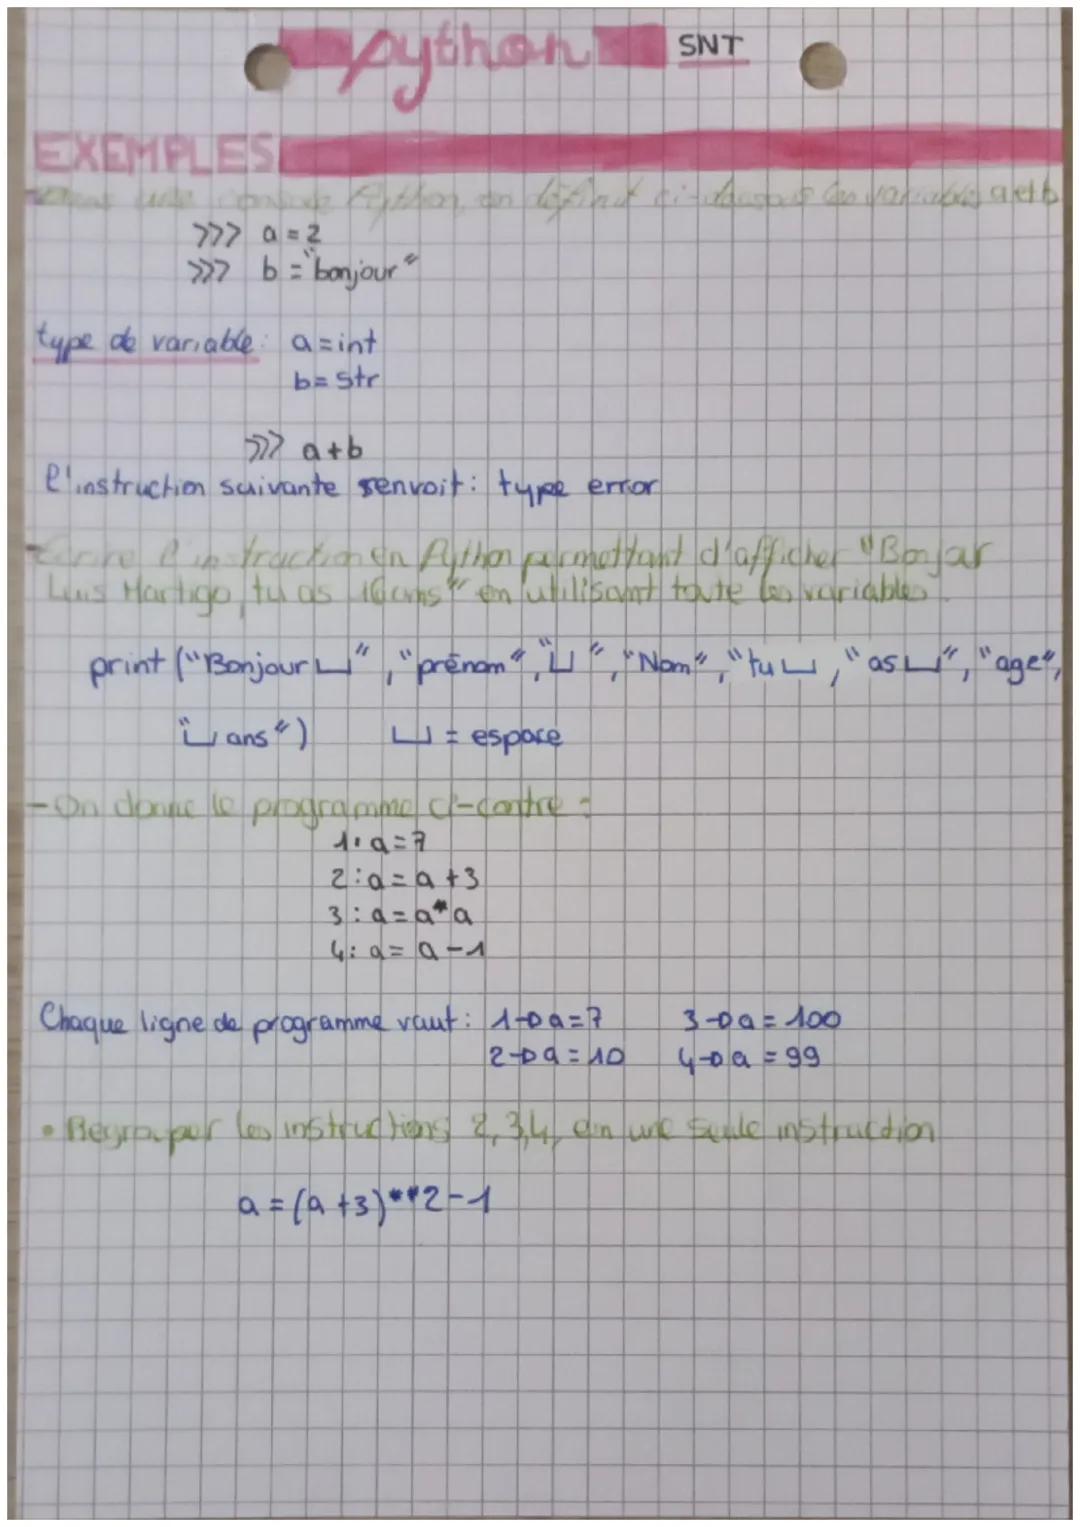 python SNT
EXEMPLES
une console Python, on définit ci-dessous les variables a et b
>>> a = 2
>>> b = "bonjour"
type de variable : a = int
b = str
>>> a + b
l'instruction suivante renvoit : type error
- Ecrire l'instruction en Python permettant d'afficher "Bonjar
Luis Martigo, tu as 16ans" en utilisant toute les variables.
print ("Bonjour ⌴", "prénom", "⌴", "Nom", "tu ⌴, "as ⌴", "age",
"⌴ ans") ⌴ = espace
- On donne le programme ci-contre :
1: a = 7
2: a = a + 3
3: a = a * a
4: a = a - 1
Chaque ligne de programme vaut : 1→ a = 7 3→ a = 100
2→ a = 10 4→ a = 99
• Regrouper les instructions 2, 3, 4, en une seule instruction
a = (a + 3)**2 - 1